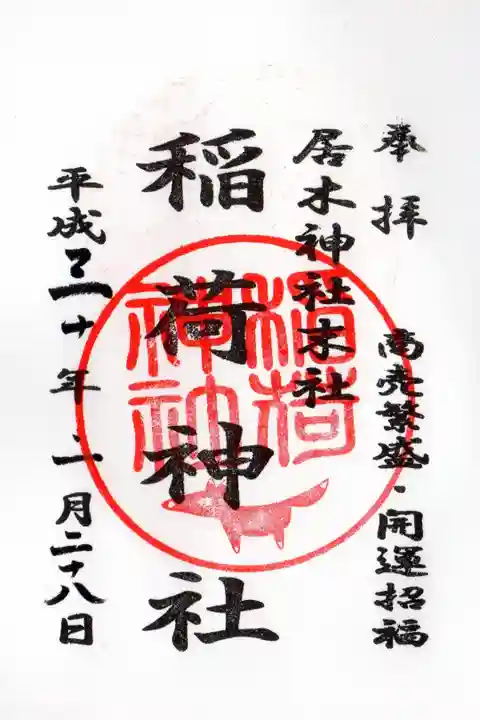 奉拝 商売繁盛・開運招福
居木神社末社
稲荷神社
平成三十年二月二十八日
稲荷
神社